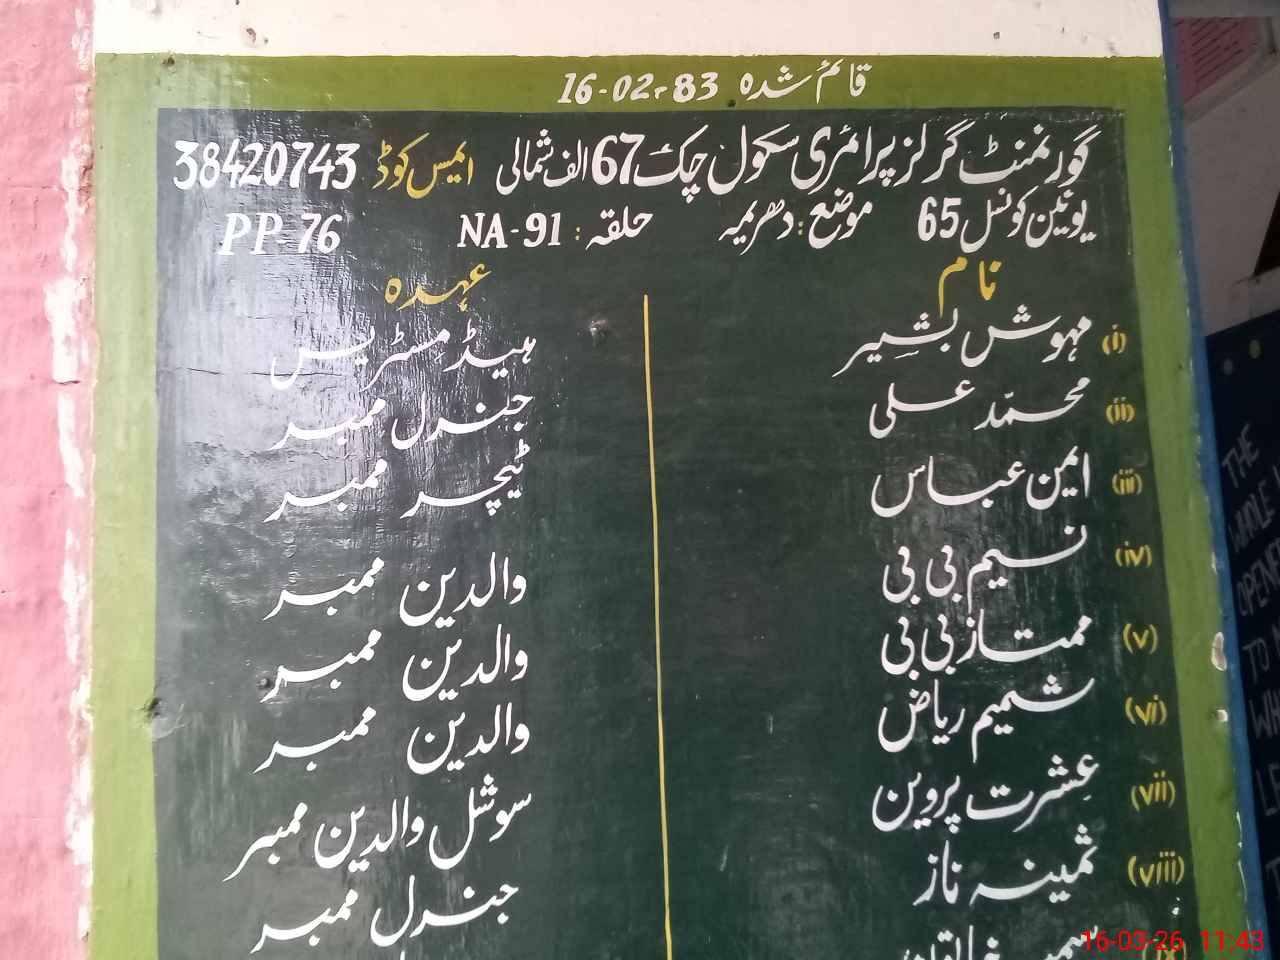 قائم شدہ 16-02-83
گورنمنٹ گرلز پرائمری سکول چک 67 الف شمالی ایمس کوڈ 38420743
یونین کونسل 65 موضع: دھریمہ حلقہ: NA-91 PP-76
نام عہدہ
(i) مہوش بشیر ہیڈ مسٹریس
(ii) محمد علی جنرل ممبر
(iii) ایمن عباس ٹیچر ممبر
(iv) نسیم بی بی والدین ممبر
(v) ممتاز بی بی والدین ممبر
(vi) شمیم ریاض والدین ممبر
(vii) عشرت پروین سوشل والدین ممبر
(viii) ثمینہ ناز جنرل ممبر
THE
WHOLE
TO
16-03-26 11:43